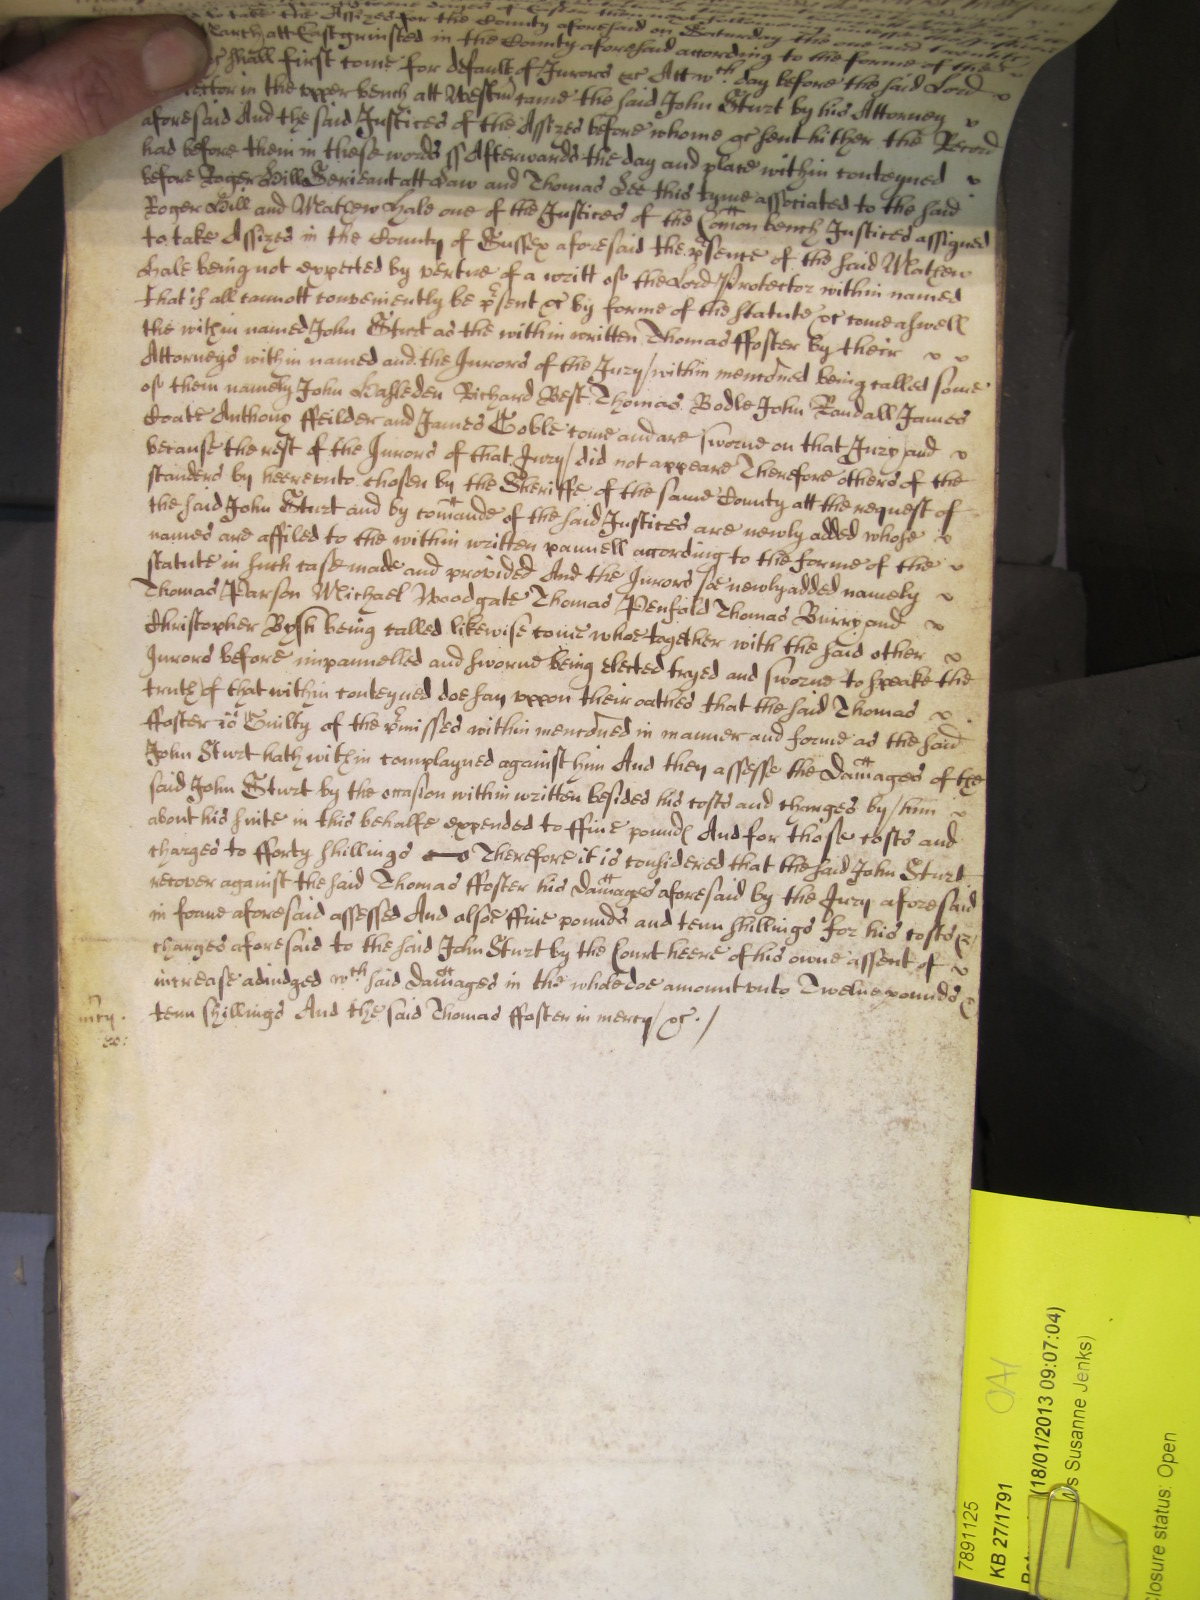 to take the Assizes for the County aforesaid on Saturday the one and
March att Eastgrinsted in the County aforesaid according to the forme of the
shall first come for default of Jurors &c Att wch day before the said Lord
Protector in the upper bench att Westm came the said John Sturt by his Attorney
aforesaid And the said Justices of the Assizes before whome &c sent hither the Record
had before them in these words ss Afterwards the day and place within conteyned
before Roger Hill Serieant att Law and Thomas Lee this tyme associated to the said
Roger Hill and Mathew Hale one of the Justices of the Comon bench Justices assigned
to take Assizes in the County of Sussex aforesaid the psence of the said Mathew
Hale being not expected by vertue of a writt of the Lord Protector within named
that if all cannott conveniently be psent &c by forme of the statute &c come aswell
the within named John Sturt as the within written Thomas ffoster by their
Attorneys within named and the Jurors of the Jury within menconed being called some
of them namely John Richard Best Thomas Bodle John Randall James
Coate Anthony ffeilder and James Goble come and are sworne on that Jury and
because the rest of the Jurors of that Jury did not appeare Therefore others of the
standers by heereunto chosen by the Sheriffe of the same County att the request of
the said John Sturt and by comande of the said Justices are newly added whose
names are affiled to the within written pannell according to the forme of the
statute in such case made and provided And the Jurors soe newly added namely
Thomas Parson Michael Woodgate Thomas Penfold Thomas Burry and
Christopher Bysh being called likewise come whoe together with the said other
Jurors before impannelled and sworne being elected tryed and sworne to speake the
truth of that within conteyned doe say uppon their oathes that the said Thomas
ffoster is Guilty of the pmisses within menconed in manner and forme as the said
John Sturt hath within complayned against him And they assesse the Damages of the
said John Sturt by the occasion within written besides his costs and charges by him
about his suite in this behalfe expended to ffive pounds And for those costs and
charges to fforty shillings Therefore it is considered that the said John Sturt
recover against the said Thomas ffoster his damages aforesaid by the Jury aforesaid
in forme aforesaid assessed And alsoe ffive pounds and tenn shillings for his costs &
charges aforesaid to the said John Sturt by the Court heere of his owne assent of
increase adiudged wch said damages in the whole doe amount unto Twelve pounds
mcy.
tenn shillings And the said Thomas ffoster in mercy &c./
7891125
KB 27/1791
(18/01/2013 09:07:04)
s Susanne Jenks)
losure status: Open